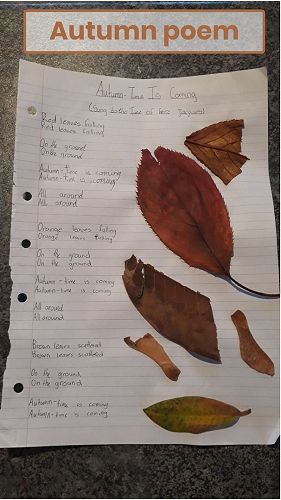 Autumn poem
Autumn-Time Is Coming
(Sung to the tune of Frère Jacques)
Red leaves falling
Red leaves falling
On the ground
On the ground
Autumn-time is coming
Autumn-time is coming
All around
All around
Orange leaves falling
Orange leaves falling
On the ground
On the ground
Autumn-time is coming
Autumn-time is coming
All around
All around
Brown leaves scattered
Brown leaves scattered
On the ground
On the ground
Autumn-time is coming
Autumn-time is coming